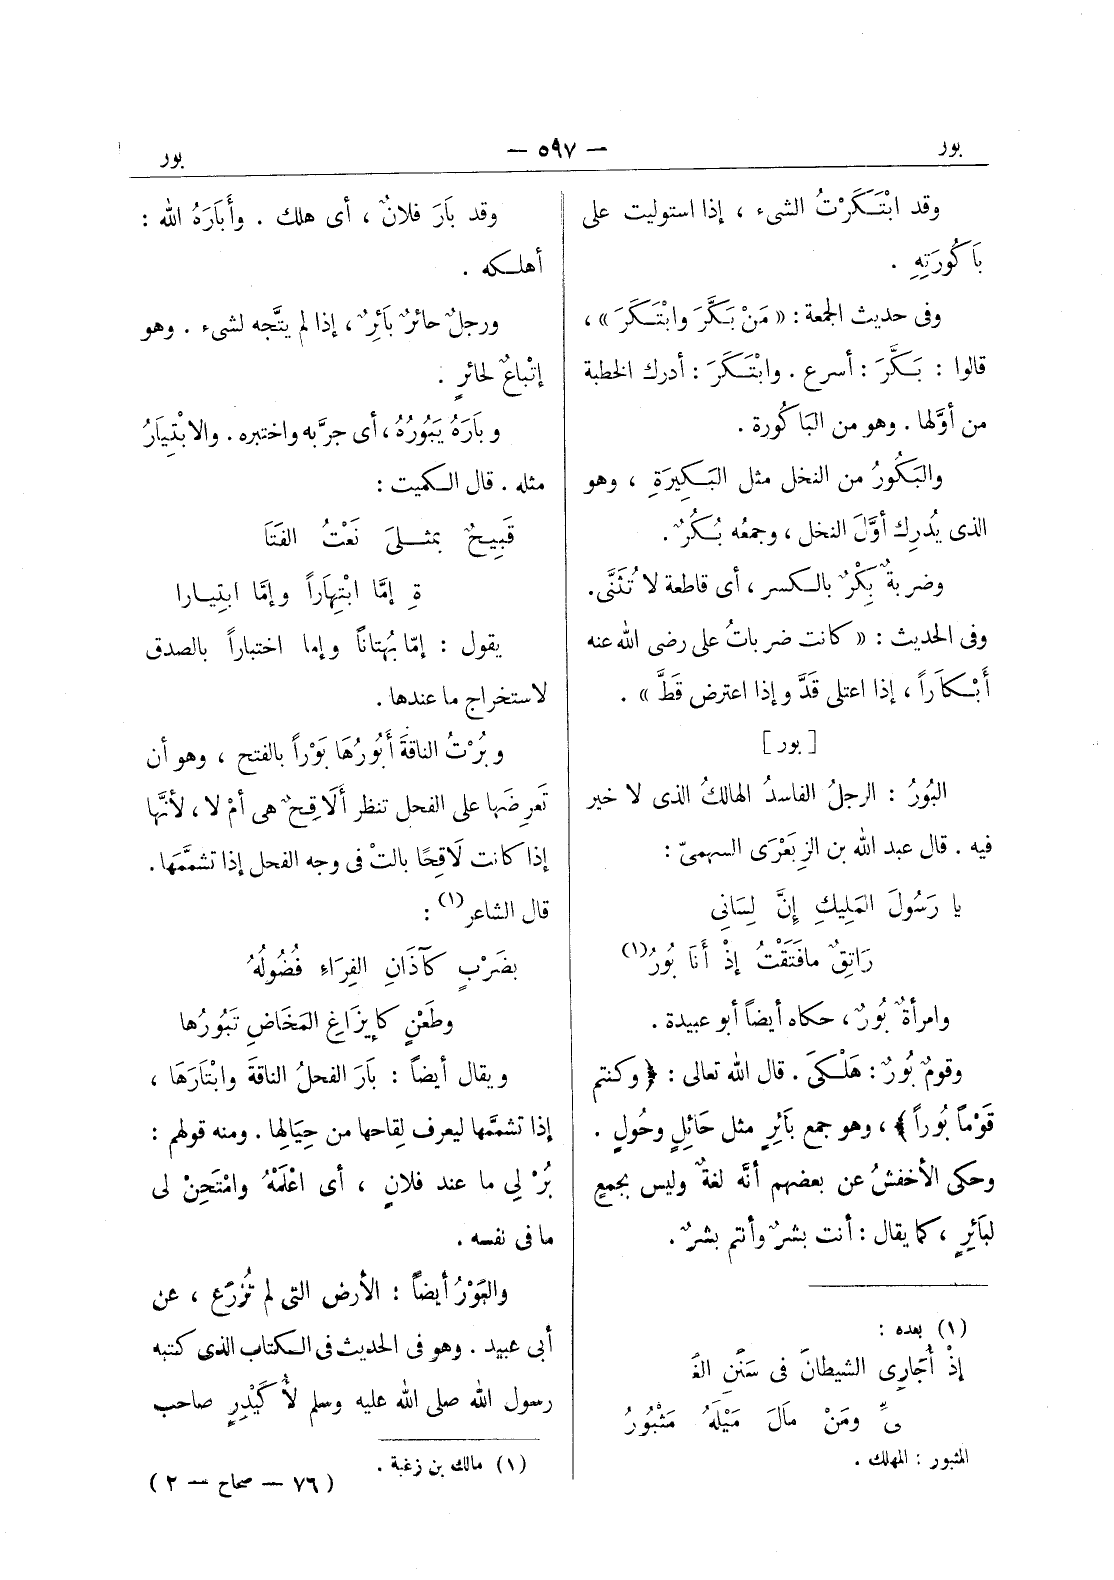 بور
— ٥٩٧ —
بور
وقد ابْتَـكَرْتُ الشىء ، إذا استوليت على
بَاكُورَتِهِ .
وفى حديث الجمعة : « مَنْ بَكَّرَ وابْتَـكَرَ » ،
قالوا : بَـكَّرَ : أسرع . وابْتَـكَرَ : أدرك الخطبة
من أوَّلها . وهو من البَاكُورة .
والبَكُورُ من النخل مثل البَـكِيرَةِ ، وهو
الذى يُدرِك أوَّلَ النخل ، وجمعُه بُـكُرٌ .
وضربةٌ بِكْرٌ بالـكسر ، أى قاطعة لا تُثَنَّى .
وفى الحديث : « كانت ضرباتُ على رضى الله عنه
أَبْـكَاراً ، إذا اعتلى قَدَّ وإذا اعترض قَطَّ » .
[ بور ]
البُورُ : الرجلُ الفاسدُ الهالكُ الذى لا خير
فيه . قال عبد الله بن الزِبَعْرَى السهمىّ :
يا رَسُولَ المَلِيكِ إنَّ لِسَانِى
رَاتِقٌ مافَتَقْتُ إذْ أَنَا بُورُ(١)
وامرأةٌ بُورٌ ، حكاه أيضاً أبو عبيدة .
وقومٌ بُورٌ : هَلْكَى . قال الله تعالى : ﴿ وكنتم
قَوْماً بُوراً ﴾ ، وهو جمع بَائِرٍ مثل حَائِلٍ وحُولٍ .
وحكى الأخفشُ عن بعضهم أنّه لغةٌ وليس بجمعٍ
لبَائِرٍ ، كما يقال : أنت بشرٌ وأنتم بشرٌ .
(١) بعده :
إذْ أُجَارِى الشيطانَ فى سَنَنِ الغَـ
ـىِّ ومَنْ مَالَ مَيْلَهُ مَثْبُورُ
المثبور : المهلك .
وقد بَارَ فلانٌ ، أى هلك . وأَبَارَهُ الله :
أهلـكه .
ورجلٌ حائرٌ بَائِرٌ ، إذا لم يتَّجه لشىء . وهو
إتْباعٌ لحائرٍ .
وبَارَهُ يَبُورُهُ ، أى جرَّبه واختبره . والابْتِيَارُ
مثله . قال الـكميت :
قَبِيحٌ بمثـلىَ نَعْتُ الفَتَا
ةِ إمَّا ابْتِهَاراً وإمَّا ابتِيـارا
يقول : إمّا بُهتاناً وإما اختباراً بالصدق
لاستخراج ما عندها .
وبُرْتُ الناقةَ أَبُورُهَا بَوْراً بالفتح ، وهو أن
تَعرِضَها على الفحل تنظر أَلَاقِحٌ هى أمْ لا ، لأنَّها
إذا كانت لَاقِحًا بالتْ فى وجه الفحل إذا تشمَّمَها .
قال الشاعر(١) :
بضَرْبٍ كآذَانِ الفِرَاءِ فُضُولُهُ
وطَعْنٍ كإيزَاغِ المَخَاضِ تَبُورُها
ويقال أيضاً : بَارَ الفحلُ الناقةَ وابْتَارَهَا ،
إذا تشمَّمها ليعرف لِقاحها من حِيَالِها . ومنه قولهم :
بُرْ لِى ما عند فلانٍ ، أى اعْلَمْهُ وامْتَحِنْ لى
ما فى نفسه .
والبَوْرُ أيضاً : الأرض التى لم تُزْرَع ، عن
أبى عبيد . وهو فى الحديث فى الـكتاب الذى كتبه
رسول الله صلى الله عليه وسلم لأُكَيْدِرٍ صاحب
(١) مالك بن زغبة .
( ٧٦ — صحاح — ٢ )